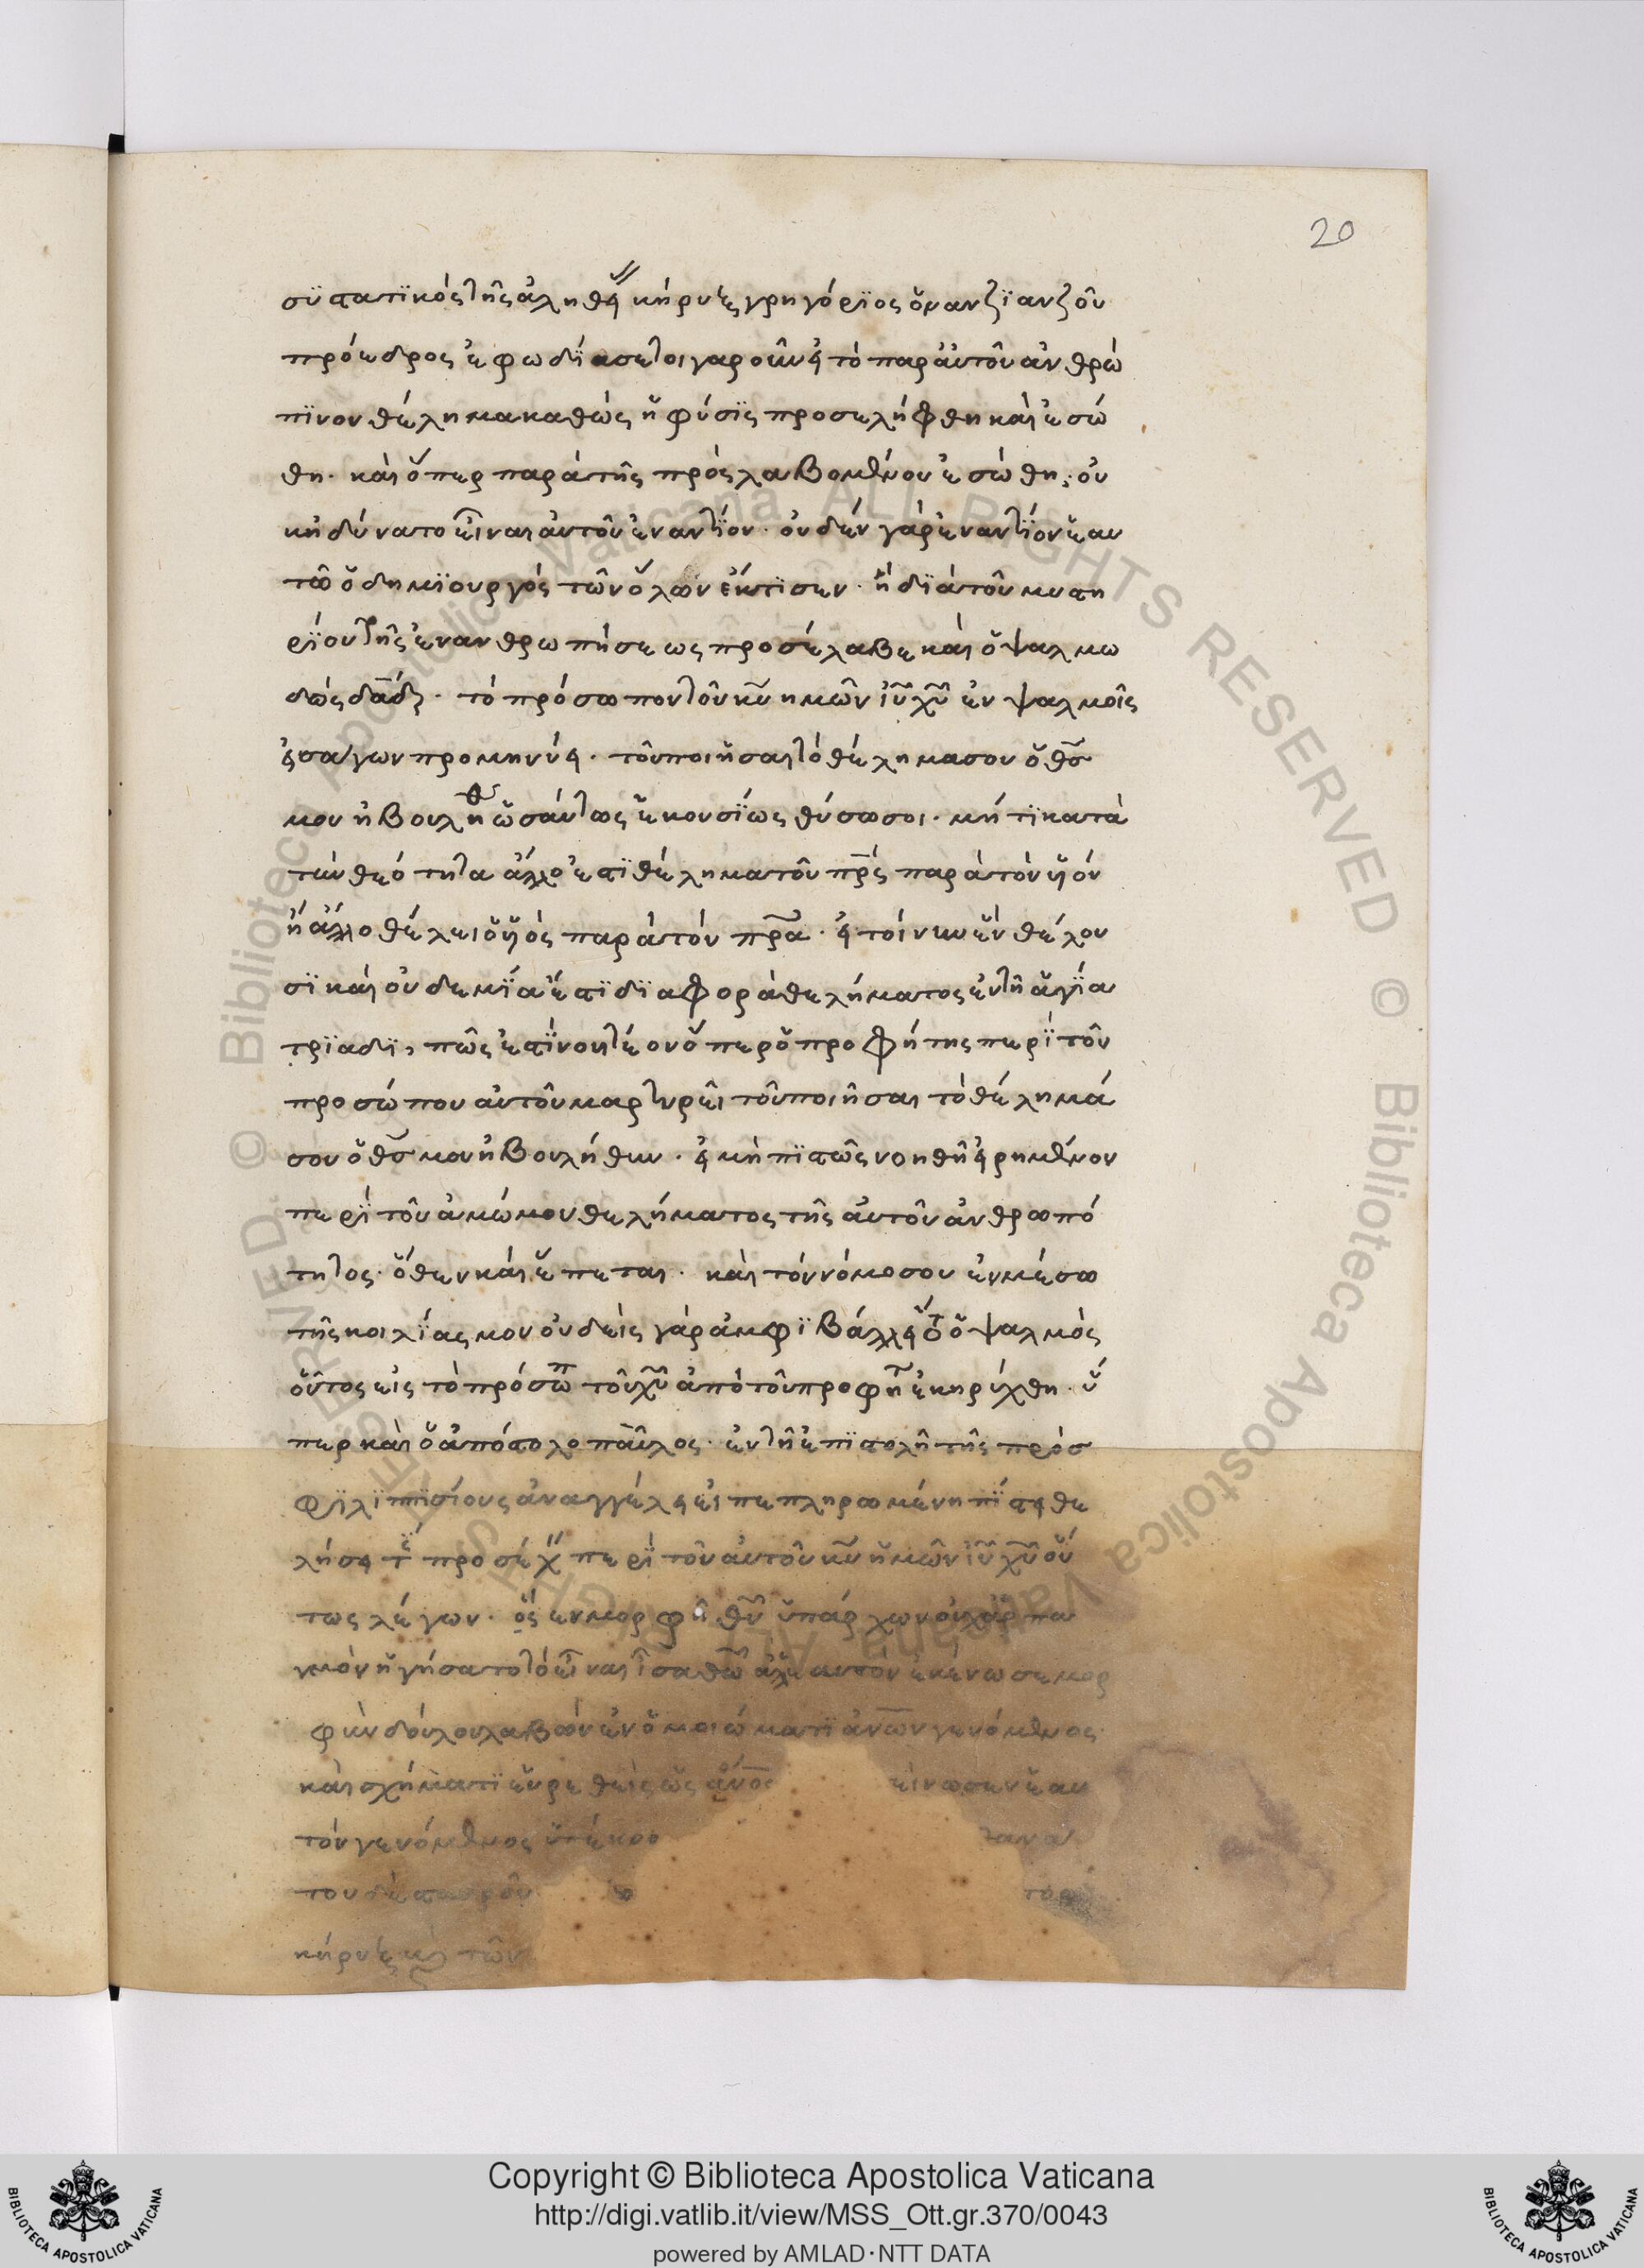 20
συστατικὸς τῆς ἀληθεί κήρυξ γρηγόριος ὁ ναζιανζοῦ
πρόεδρος ἐφωδίασε τοιγαροῦν εἰ τὸ παρ αὐτοῦ ἀνθρώ
πϊνον θέλημα καθὼς ἡ φύσϊς προσελήφθη καὶ ἐσώ
θη. καὶ ὅπερ παρὰ τῆς πρὸς λαβομένου ἐσώθη, οὐ
κ ἠδύνατο εἶναι αὐτοῦ ἐναντίον. οὐδὲν γὰρ ἐναντίον ἑαυ
τῶ ὁ δημϊουργὸς τῶν ὅλων ἔκτισεν. ἢ δϊὰ τοῦ μυστη
ρϊου τῆς ἐνανθρωπήσεως προσέλαβε καὶ ὁ ψαλμω
δὸς δᾱδ. τὸ πρόσωπον τοῦ κυ ημῶν ιυ χυ ἐν ψαλμοῖς
εἰσαγων προμηνύει. τοῦ ποιῆσαι τὸ θέλημα σου ὁ θς
μου ἠβουλήθ ὡσάυτως ἑκουσϊως θύσω σοι. μή τϊ κατὰ
την θεότητα ἄλλο ἐστϊ θέλημα τοῦ πρς παρὰ τὸν ὑὸν
ἢ ἄλλο θέλει ὁ ὑὸς παρὰ τὸν πρα. εἰ τοίνυν ἓν θέλου
σϊ καὶ οὐδεμϊα ἔστϊ δϊαφορὰ θελήματος ἐν τῆ ἁγϊα
τρϊαδϊ, πῶς ἐστϊ νοητέον ὅπερ ὁ προφήτης περὶ τοῦ
προσώπου αὐτοῦ μαρτυρεῖ τοῦ ποιῆσαι τὸ θέλημά
σου ὁ θς μου ἠβουλήθην. εἰ μὴ πϊστῶς νοηθῆ εἰρημένον
περὶ τοῦ ἀμώμου θελήματος τῆς αὐτοῦ ἀνθρωπό
τητος. ὅθεν καὶ ἕπεται. καὶ τὸν νόμο σου ἐν μέσω
τῆς κοιλϊας μου οὐδεὶς γὰρ ἀμφϊβάλλει ὅτ ὁ ψαλμὸς
οὗτος εἰς τὸ πρόσωπ τοῦ χυ ἀπὸ τοῦ προφητ ἐκηρύχθη. ὅ
περ καὶ ὁ ἀπόστολο παῦλος. ἐν τῆ ἐπϊστολῆ τῆς πρὸσ
φϊλϊπϊσίους ἀναγγέλει εἰ πεπληρωμένη πϊστει θε
λήσει τ προσέχ περὶ τοῦ αὐτοῦ κυ ἡμῶν ιυ χυ οὕ
τως λέγων. ὃς εν μορφῆ θυ ὑπάρχων οὐχ ἁρπα
γμὸν ἡγήσατο τὸ εἶναι ἶσα θω ἀλλ εαυτὸν ἐκένωσε μορ
φὴν δούλου λαβὼν ἐν ὁμοιώματϊ ἀνων γενόμενος
καὶ σχήματϊ εὑρεθεὶς ὡς ἄνος είνωσεν ἑαυ
τόν γενόμενος ὑπήκοο θανα
του δὲ σταυροῦ ο το
κήρυξ καὶ τῶν
Copyright © Biblioteca Apostolica Vaticana
http://digi.vatlib.it/view/MSS_Ott.gr.370/0043
powered by AMLAD·NTT DATA